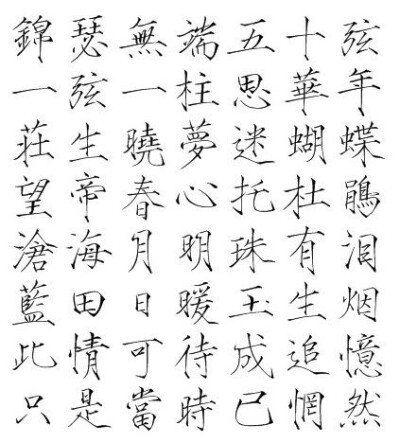 錦瑟無端五十弦
一弦一柱思華年
莊生曉夢迷蝴蝶
望帝春心托杜鵑
滄海月明珠有泪
藍田日暖玉生烟
此情可待成追憶
只是當時已惘然